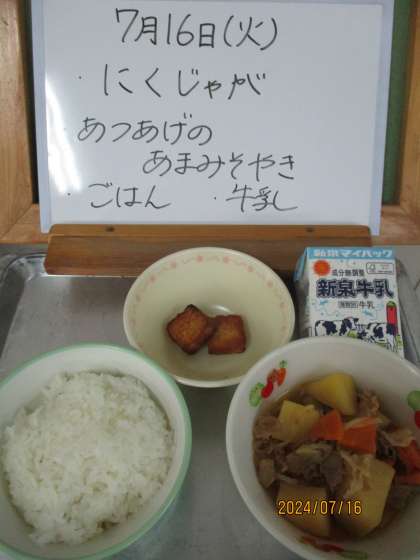 7月16日(火)
・にくじゃが
・あつあげの
あまみそやき
・ごはん ・牛乳
新泉マイパック
成分無調整
新泉牛乳
種類別 牛乳
2024/07/16